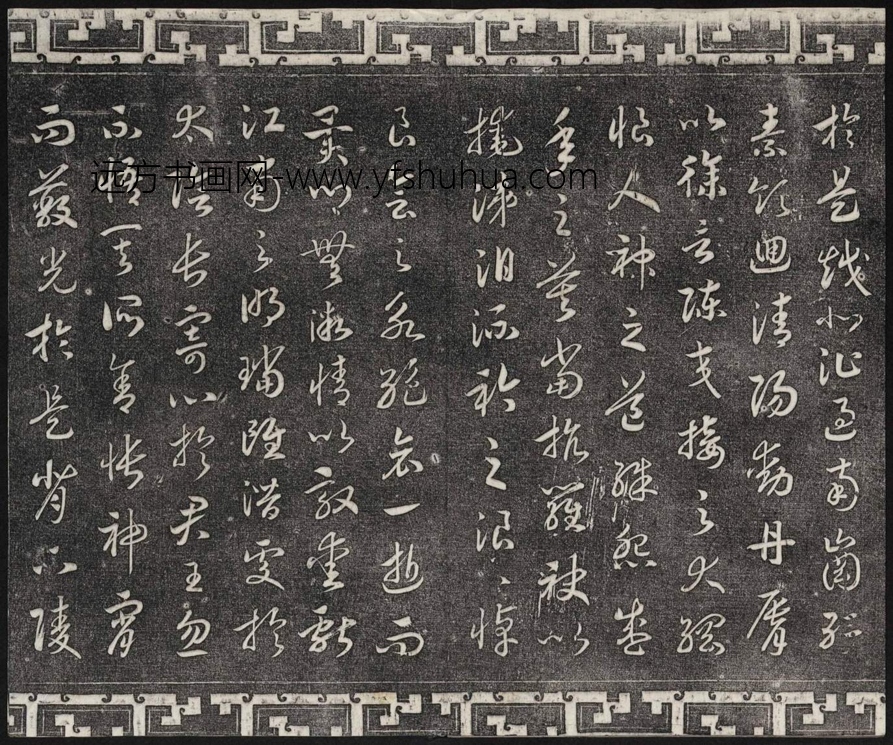 於是越北沚過南岡紆
素領迴清陽動丹脣
以徐言陳交接之大綱
恨人神之道殊怨盛
年之莫當抗羅袂以
掩涕泪流衿之浪〻悼
良會之永絕哀一逝而
異鄉無微情以效愛獻
江南之明璫雖潛處於
太陰長寄心於君王忽
不悟其所舍悵神宵
而蔽光於是背下陵
远方书画网-www.yfshuhua.com